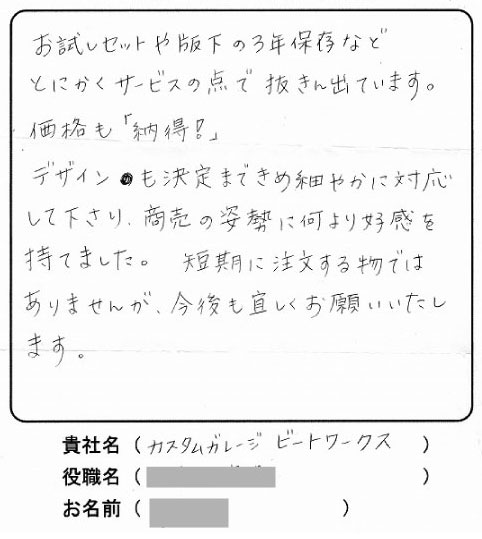 お試しセットや版下の3年保存など
とにかくサービスの点で抜きん出ています。
価格も「納得!」
デザインも決定まできめ細やかに対応
して下さり、商売の姿勢に何より好感を
持てました。 短期に注文する物では
ありませんが、今後も宜しくお願いいたし
ます。
貴社名（カスタムガレージ ビートワークス ）
役職名（ ）
お名前（ ）